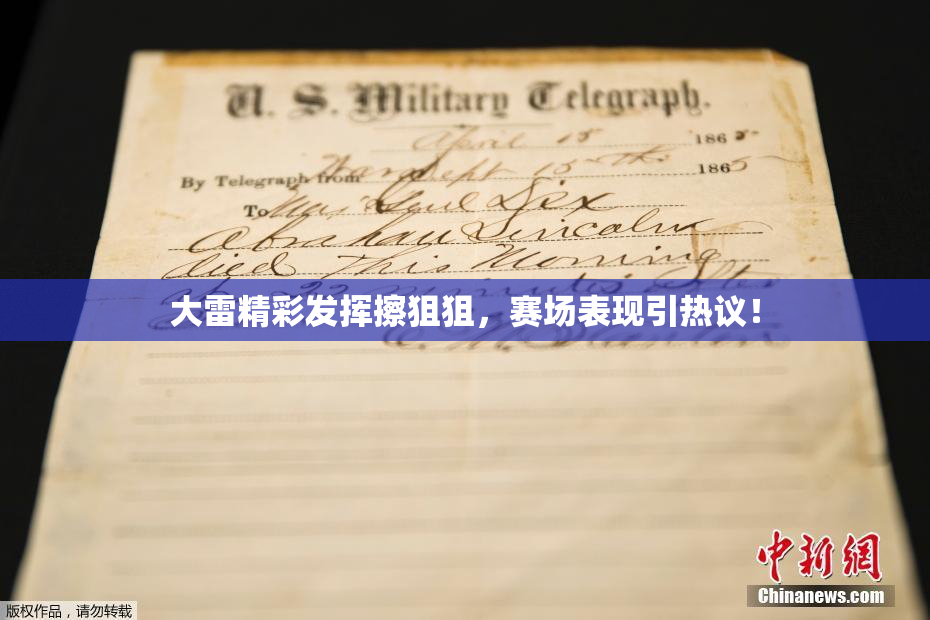 U. S. Military Telegraph.
April 15 1865
By Telegraph from War Dept 15th 1865
To Maj Genl Dix
Abraham Lincoln
died This Morning
at 22 minutes after
大雷精彩发挥擦狙狙，赛场表现引热议！
中新網
Chinanews.com
版权作品，请勿转载